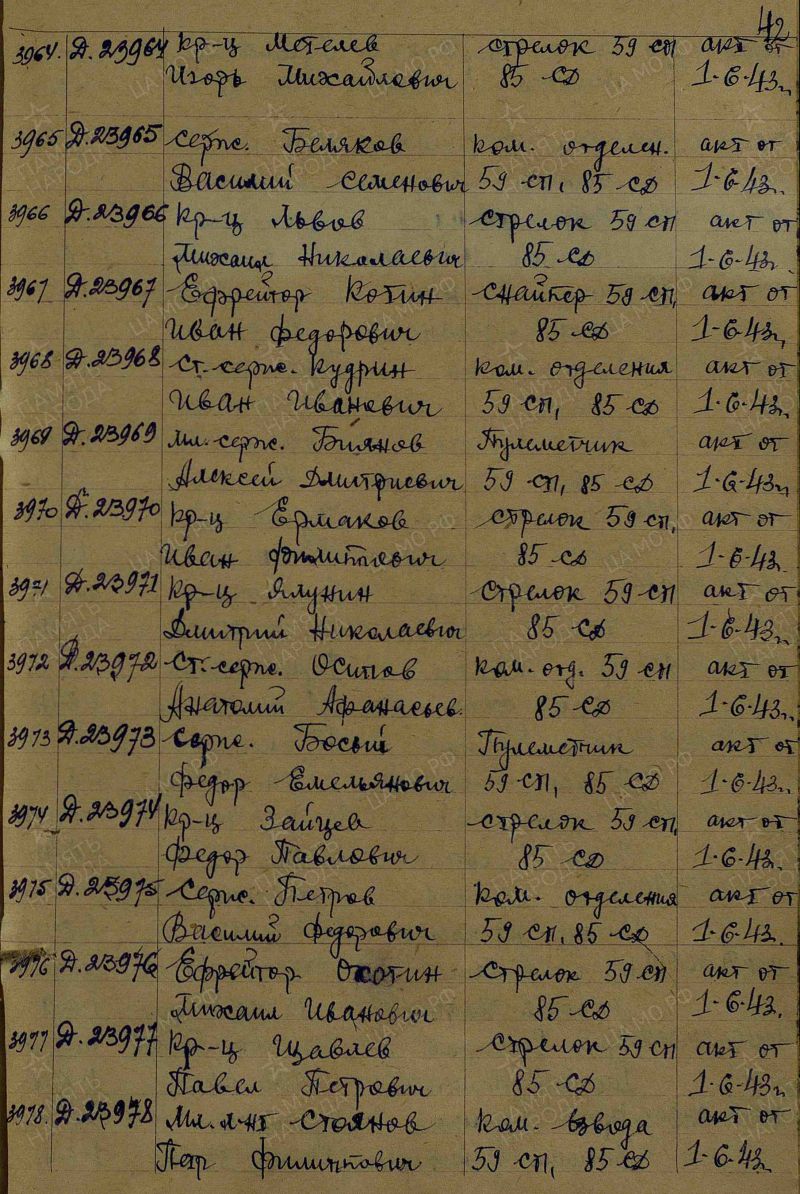 42
3964. Д.23964 кр-ц Метелев стрелок 59 сп акт от
Игорь Михайлович 85 сд 1-6-43г.
3965 Д.23965 серж. Беляков ком. отделен. акт от
Василий Семенович 59 сп, 85 сд 1-6-43г.
3966 Д.23966 кр-ц Львов стрелок 59 сп акт от
Михаил Николаевич 85 сд 1-6-43г.
3967 Д.23967 Ефрейтор Котин снайпер 59 сп, акт от
Иван Федорович 85 сд 1-6-43г.
3968 Д.23968 Ст. серж. Кудрин ком. отделения акт от
Иван Иванович 59 сп, 85 сд 1-6-43г.
3969 Д.23969 мл. серж. Биянов Пулеметчик акт от
Алексей Дмитриевич 59 сп, 85 сд 1-6-43г.
3970 Д.23970 кр-ц Ермаков стрелок 59 сп, акт от
Иван Филиппович 85 сд 1-6-43г.
3971 Д.23971 кр-ц Ялунин стрелок 59 сп акт от
Дмитрий Николаевич 85 сд 1-6-43г.
3972 Д.23972 Ст. серж. Осипов ком. отд. 59 сп акт от
Анатолий Афанасьев. 85 сд 1-6-43г.
3973 Д.23973 серж. Босый Пулеметчик акт от
Федор Емельянович 59 сп, 85 сд 1-6-43г.
3974 Д.23974 кр-ц Зайцев стрелок 59 сп, акт от
Федор Павлович 85 сд 1-6-43г.
3975 Д.23975 Серж. Петров ком. отделения акт от
Василий Федорович 59 сп, 85 сд 1-6-43г.
3976 Д.23976 Ефрейтор Охотин стрелок 59 сп акт от
Михаил Иванович 85 сд 1-6-43г.
3977 Д.23977 кр-ц Щавлев стрелок 59 сп акт от
Павел Петрович 85 сд 1-6-43г.
3978. Д.23978 Мл. л-нт Стоянов ком. взвода акт от
Петр Филиппович 59 сп, 85 сд 1-6-43г.